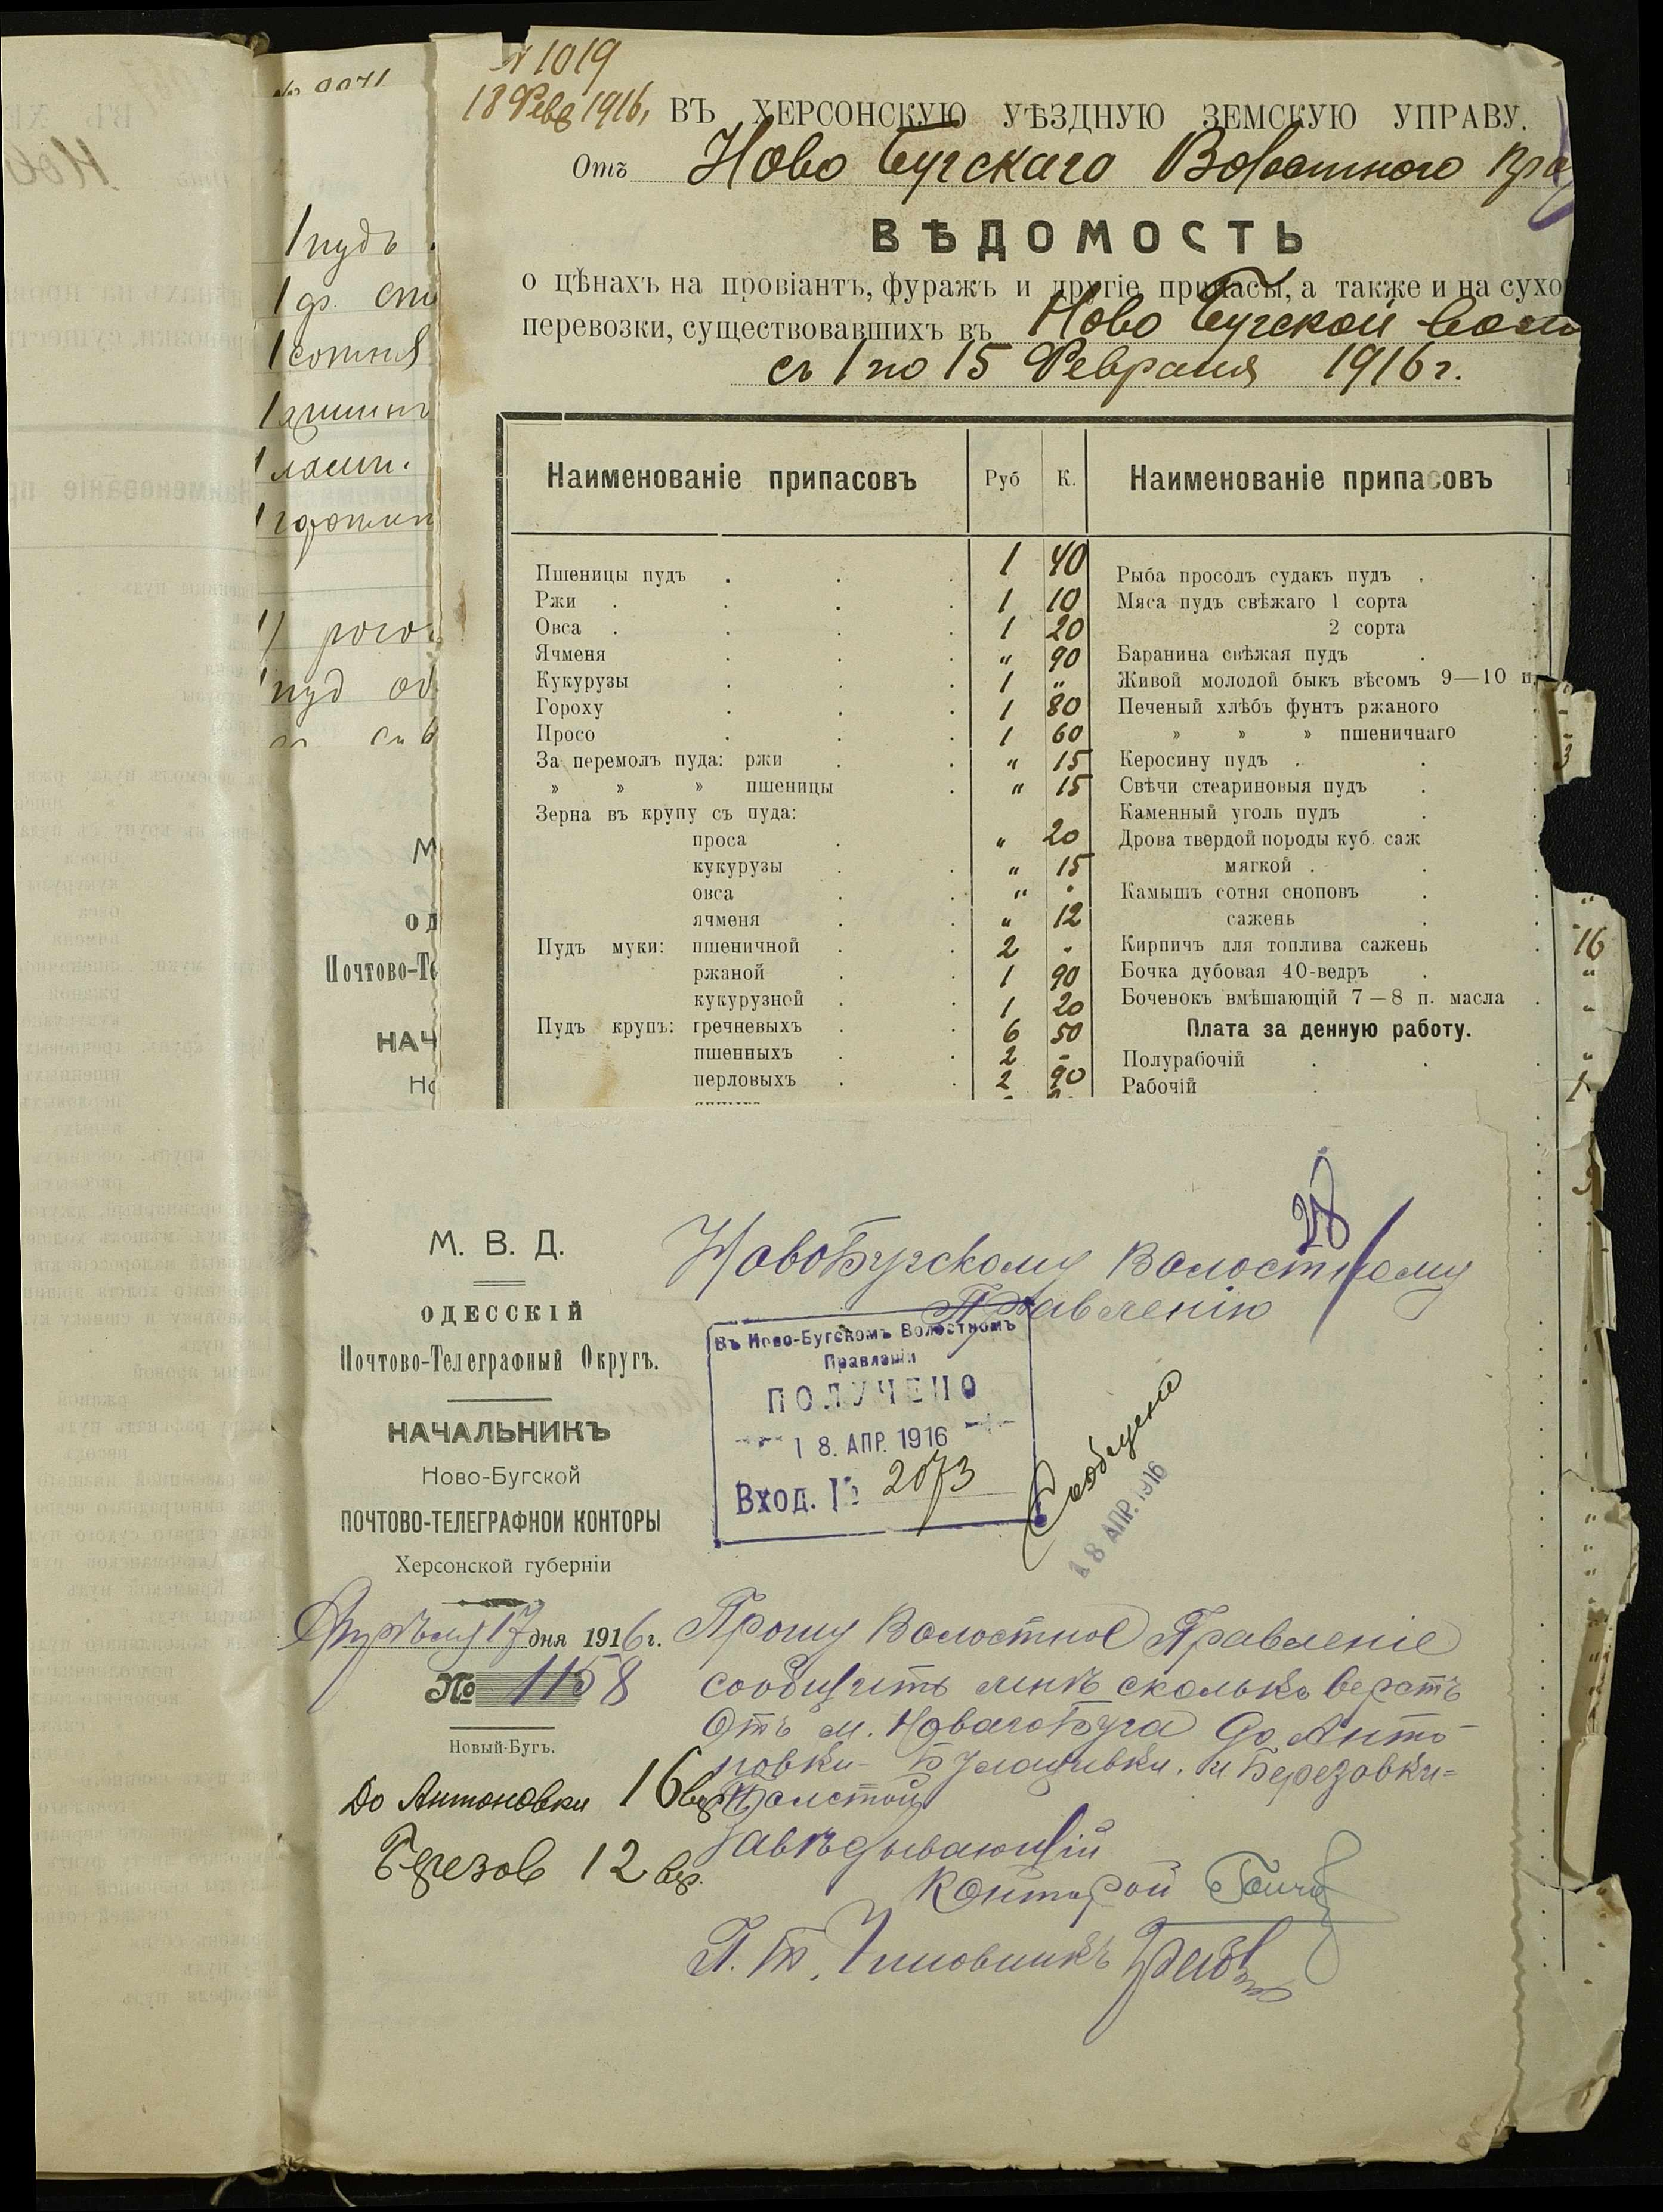 № 1019
18 Фев 1916,
ВЪ ХЕРСОНСКУЮ УѢЗДНУЮ ЗЕМСКУЮ УПРАВУ.
Отъ Ново Бугскаго Волостного Пра
ВѢДОМОСТЬ
о цѣнахъ на провіантъ, фуражъ и другіе припасы, а также и на сухо
перевозки, существовавшихъ въ Ново Бугской Вол
съ 1 по 15 Февраля 1916 г.
Наименованіе припасовъ Руб К. Наименованіе припасовъ
Пшеницы пудъ . . . 1 40 Рыба просолъ судакъ пудъ .
Ржи . . . . 1 10 Мяса пудъ свѣжаго 1 сорта
Овса . . . . 1 20 2 сорта
Ячменя . . . " 90 Баранина свѣжая пудъ .
Кукурузы . . . 1 " Живой молодой быкъ вѣсомъ 9—10 п.
Гороху . . . 1 80 Печеный хлѣбъ фунтъ ржаного
Просо . . . 1 60 » » » пшеничнаго
За перемолъ пуда: ржи . . " 15 Керосину пудъ . . 3
» » » пшеницы . " 15 Свѣчи стеариновыя пудъ .
Зерна въ крупу съ пуда: Каменный уголь пудъ .
проса . " 20 Дрова твердой породы куб. саж
кукурузы . . " 15 мягкой . .
овса . . " Камышъ сотня сноповъ . "
ячменя . . " 12 сажень .
Пудъ муки: пшеничной . . 2 Кирпичъ для топлива сажень . 16
ржаной . . 1 90 Бочка дубовая 40-ведръ . "
кукурузной . . 1 20 Боченокъ вмѣшающій 7—8 п. масла . "
Пудъ крупъ: гречневыхъ . . 6 50 Плата за денную работу.
пшенныхъ . . 2 - Полурабочій . . "
перловыхъ . . 2 90 Рабочій . 1
1 пудъ
1 ф.
1 сотня
1 аршинъ
пуд
М
ОД
Почтово-Те
НАЧ
Но
М. В. Д.
ОДЕССКІЙ
Почтово-Телеграфный Округъ.
НАЧАЛЬНИКЪ
Ново-Бугской
ПОЧТОВО-ТЕЛЕГРАФНОЙ КОНТОРЫ
Херсонской губерніи
Апрѣля 17 дня 1916 г.
№ 1158
Новый-Бугъ.
До Антоновки 16 вер
Березов 12 вер.
28
НовоБугскому Волостному
Правленію
Въ Ново-Бугскомъ Волостномъ
Правленіи
ПОЛУЧЕНО
18. АПР. 1916
Вход. № 2073
Сообщено
18 АПР. 1916
Прошу Волостное Правленіе
сообщить мнѣ сколько верстъ
Отъ м. Новаго Буга до Анто-
новки- и Березовки=
Толстой
Завѣдывающій
Конторой
П. Т. Чиновникъ